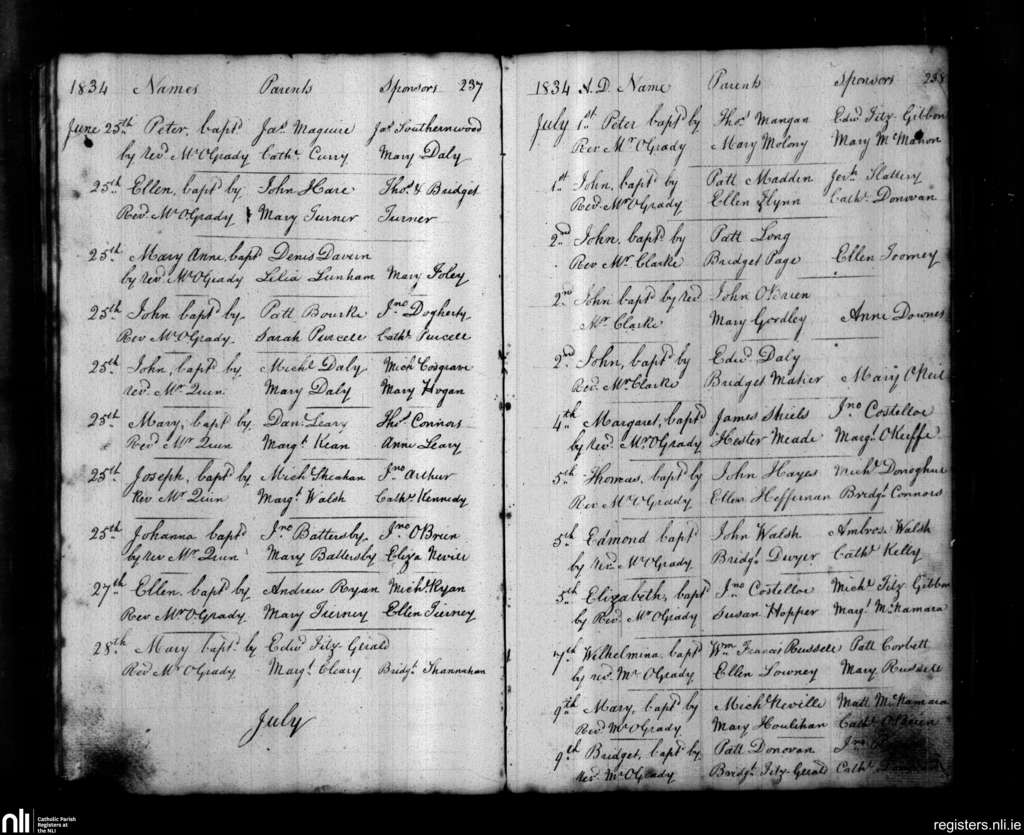 1834 Names Parents Sponsors 237
June 25th Peter, bapt Jas Maguire Jas Southernwood
by Revd Mr O'Grady Cathe Curry Mary Daly
25th Ellen, bapt by John Hare Thos & Bridget
Revd Mr O'Grady Mary Turner Turner
25th Mary Anne, bapt Denis Davern
by Revd Mr O'Grady Lilia Lunham Mary Foley
25th John bapt by Patt Bourke Jno Dogherty
Rev Mr O'Grady Sarah Purcell Cathe Purcell
25th John, bapt by Michl Daly Mich Cosgrave
Revd Mr Quin Mary Daly Mary Hogan
25th Mary, bapt by Danl Leary Thos Connors
Revd Mr Quin Margt Kean Anne Leary
25th Joseph, bapt by Mich Sheahan Jno Arthur
Rev Mr Quin Margt Walsh Cathe Kennedy
25th Johanna bapt Jno Battersby Jno O'Brien
by rev Mr Quin Mary Battersby Eliza Nevill
27th Ellen, bapt by Andrew Ryan Michl Ryan
Rev Mr O'Grady Mary Tierney Ellen Tierney
28th Mary bapt by Edwd Fitz-Gerald
Revd Mr O'Grady Margt Cleary Bridgt Shannahan
July
1834 A.D. Name Parents Sponsors 238
July 1st Peter bapt by Thos Mangan Edwd Fitz-Gibbon
Rev Mr O'Grady Mary Molony Mary McMahon
1st John, bapt by Patt Madden Jerh Slattery
Revd Mr O'Grady Ellen Flynn Cathe Donovan
2nd John, bapt by Patt Long
Rev Mr Clarke Bridget Page Ellen Toomey
2nd John bapt by revd John O'Brien
Mr Clarke Mary Gordley Anne Downes
2nd John, bapt by Edwd Daly
Revd Mr Clarke Bridget Maher Mary O'Neil
4th Margaret, bapt James Shiels Jno Costelloe
by Revd Mr O'Grady Hester Meade Margt O'Keeffe
5th Thomas, bapt by John Hayes Michl Donoghue
Rev Mr O'Grady Ellen Heffernan Bridgt Connors
5th Edmond bapt John Walsh Ambrose Walsh
by Revd Mr O'Grady Bridgt Dwyer Cathe Kelly
5th Elizabeth, bapt Jno Costelloe Michl Fitz-Gibbon
by Revd Mr O'Grady Susan Hopper Margt McNamara
7th Wilhelmina, bapt Wm Francis Russell Patt Corbett
by revd Mr O'Grady Ellen Lowney Mary Russell
9th Mary, bapt by Mich Neville Matt McNamara
Revd Mr O'Grady Mary Houlihan Cathe O'Brien
9th Bridget, bapt by Patt Donovan Jno
Revd Mr O'Grady Bridgt Fitz-Gerald Cathe
nli Catholic Parish
Registers at
the NLI
registers.nli.ie